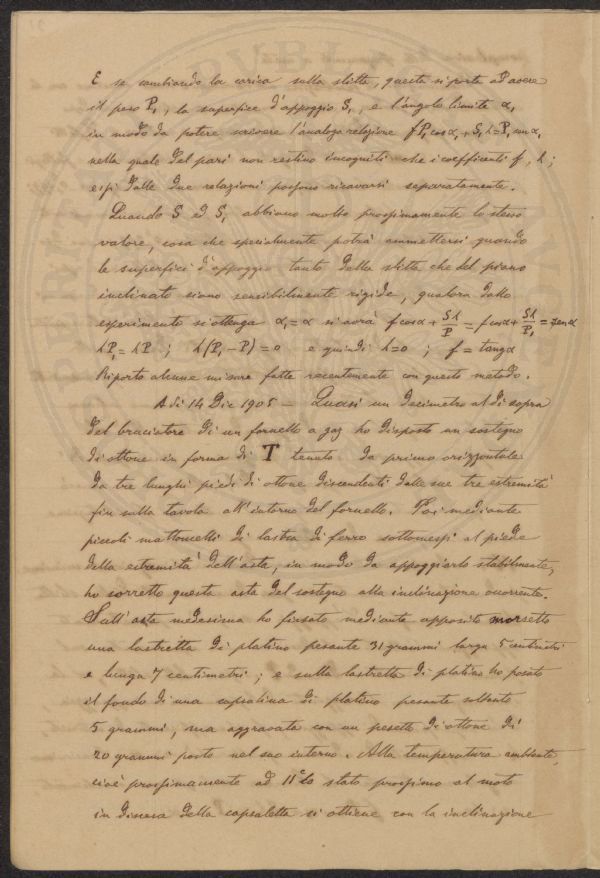 E se cambiando la carica sulla slitta, questa si porta ad avere
il peso P₁, la superfice d'appoggio S₁, e l'angolo limite α₁
in modo da potere scrivere l'analoga relazione fP₁cosα₁+S₁λ=P₁senα₁
nella quale del pari non restino incogniti che i coefficenti f, λ;
essi dalle due relazioni possono ricavarsi separatamente.
Quando S ed S₁ abbiano molto prossimamente lo stesso
valore, cosa che specialmente potrà ammettersi quando
le superfici d'appoggio tanto della slitta che del piano
inclinato siano sensibilmente rigide, qualora dallo
esperimento si ottenga α₁=α si avrà f cosα + Sλ/P = f cosα + Sλ/P₁ = senα
λP₁=λP ; λ(P₁-P)=0 e quindi λ=0 ; f=tangα
Riporto alcune misure fatte recentemente con questo metodo.
A dì 14 Dic 1905 — Quasi un decimetro al di sopra
del bruciatore di un fornello a gaz ho disposto un sostegno
di ottone in forma di T tenuto da primo orizzontale
da tre lunghi piedi di ottone discendenti dalle sue tre estremità
fin sulla tavola all'intorno del fornello. Poi mediante
piccoli mattoncelli di lastra di ferro sottomessi al piede
della estremità dell'asta, in modo da appoggiarlo stabilmente,
ho sorretto questa asta del sostegno alla inclinazione occorrente.
Sull'asta medesima ho fissato mediante apposito morsetto
una lastretta di platino pesante 31 grammi larga 5 centimetri
e lunga 7 centimetri; e sulla lastretta di platino ho posato
il fondo di una capsulina di platino pesante soltanto
5 grammi, ma aggravata con un pesetto di ottone di
20 grammi posto nel suo interno. Alla temperatura ambiente,
cioè prossimamente ad 11° lo stato prossimo al moto
in discesa della capsuletta si ottiene con la inclinazione